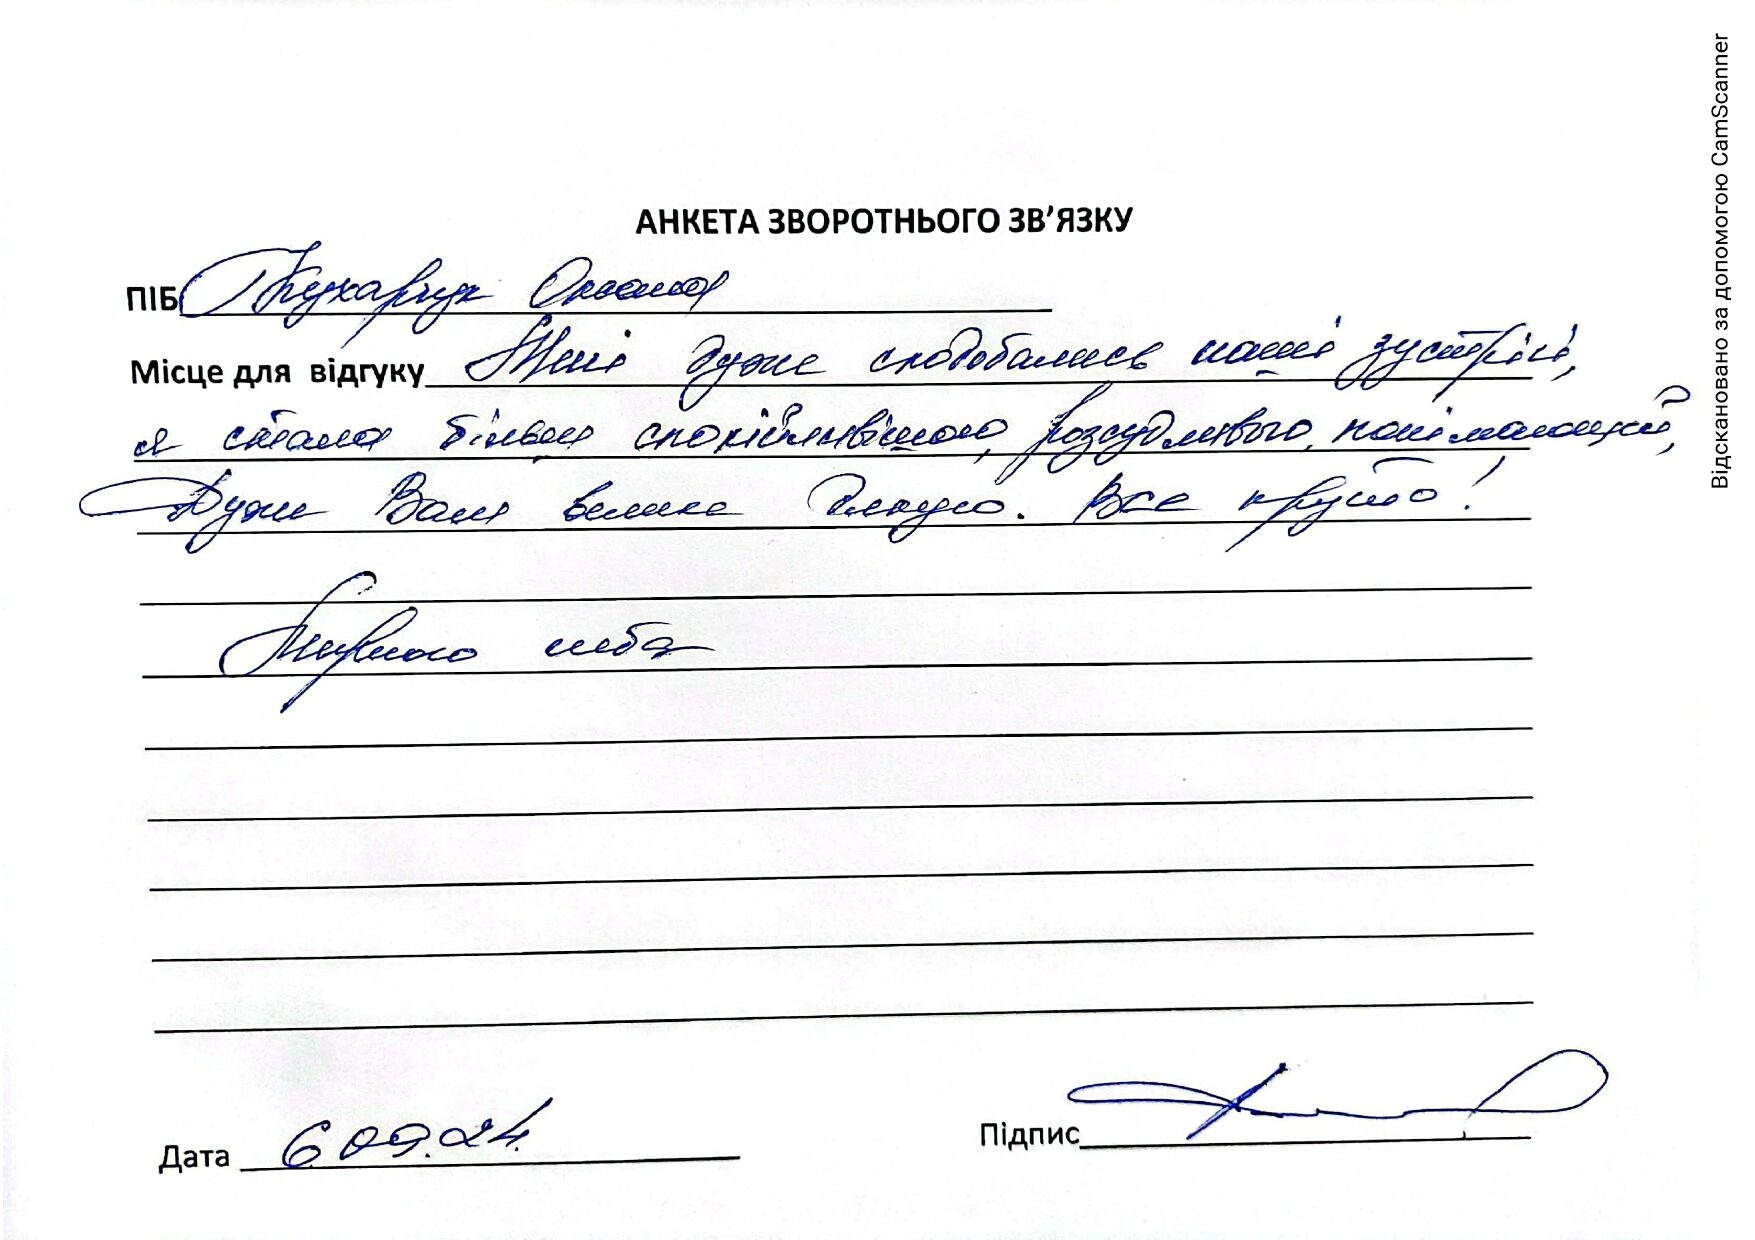 АНКЕТА ЗВОРОТНЬОГО ЗВ'ЯЗКУ
ПІБ Кухарчук Оксана
Місце для відгуку Мені дуже сподобались наші зустрічі,
я стала більш спокійнівішою, розсудливою,
Дуже Вам велике дякую. Все круто!
Мирного неба
Дата 6.09.24.
Підпис
Відскановано за допомогою CamScanner